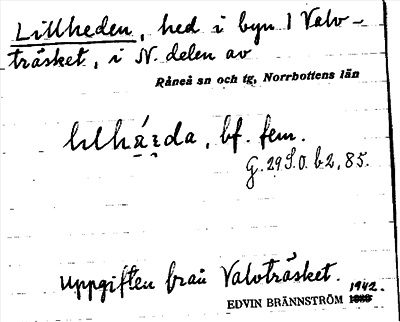 Lillheden, hed i byn Valv-
träsket, i N. delen av
Råneå sn och tg, Norrbottens län
bf. fem.
G. 29 S.O. b2, 85.
Uppgiften från Valvträsket.
1942.
EDVIN BRÄNNSTRÖM